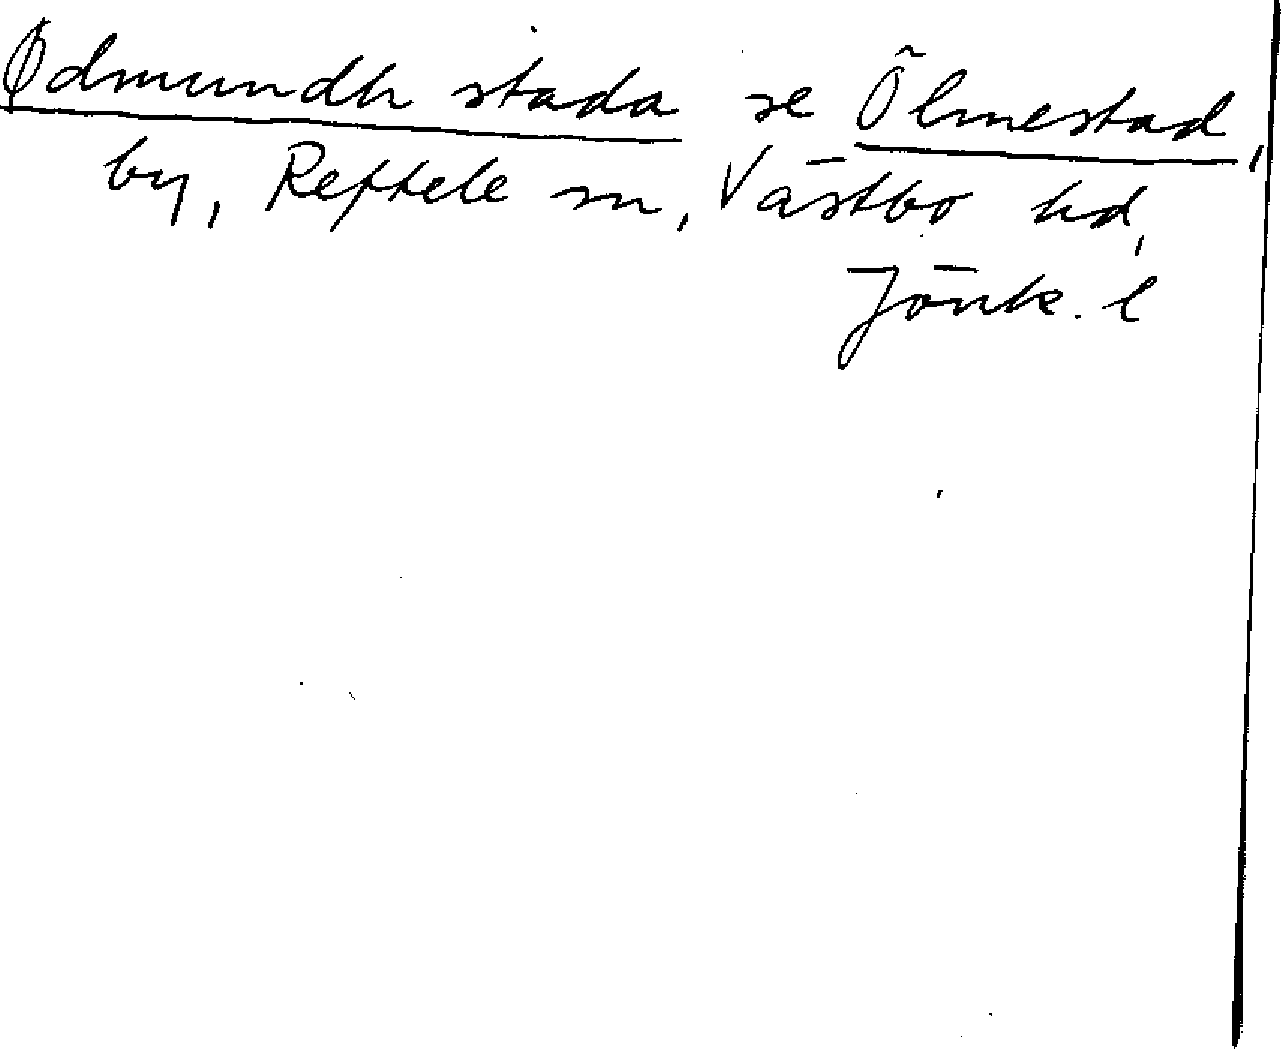 Ødmundh stada se Ölmestad,
by, Reftele sn, Västbo hd,
Jönk. l